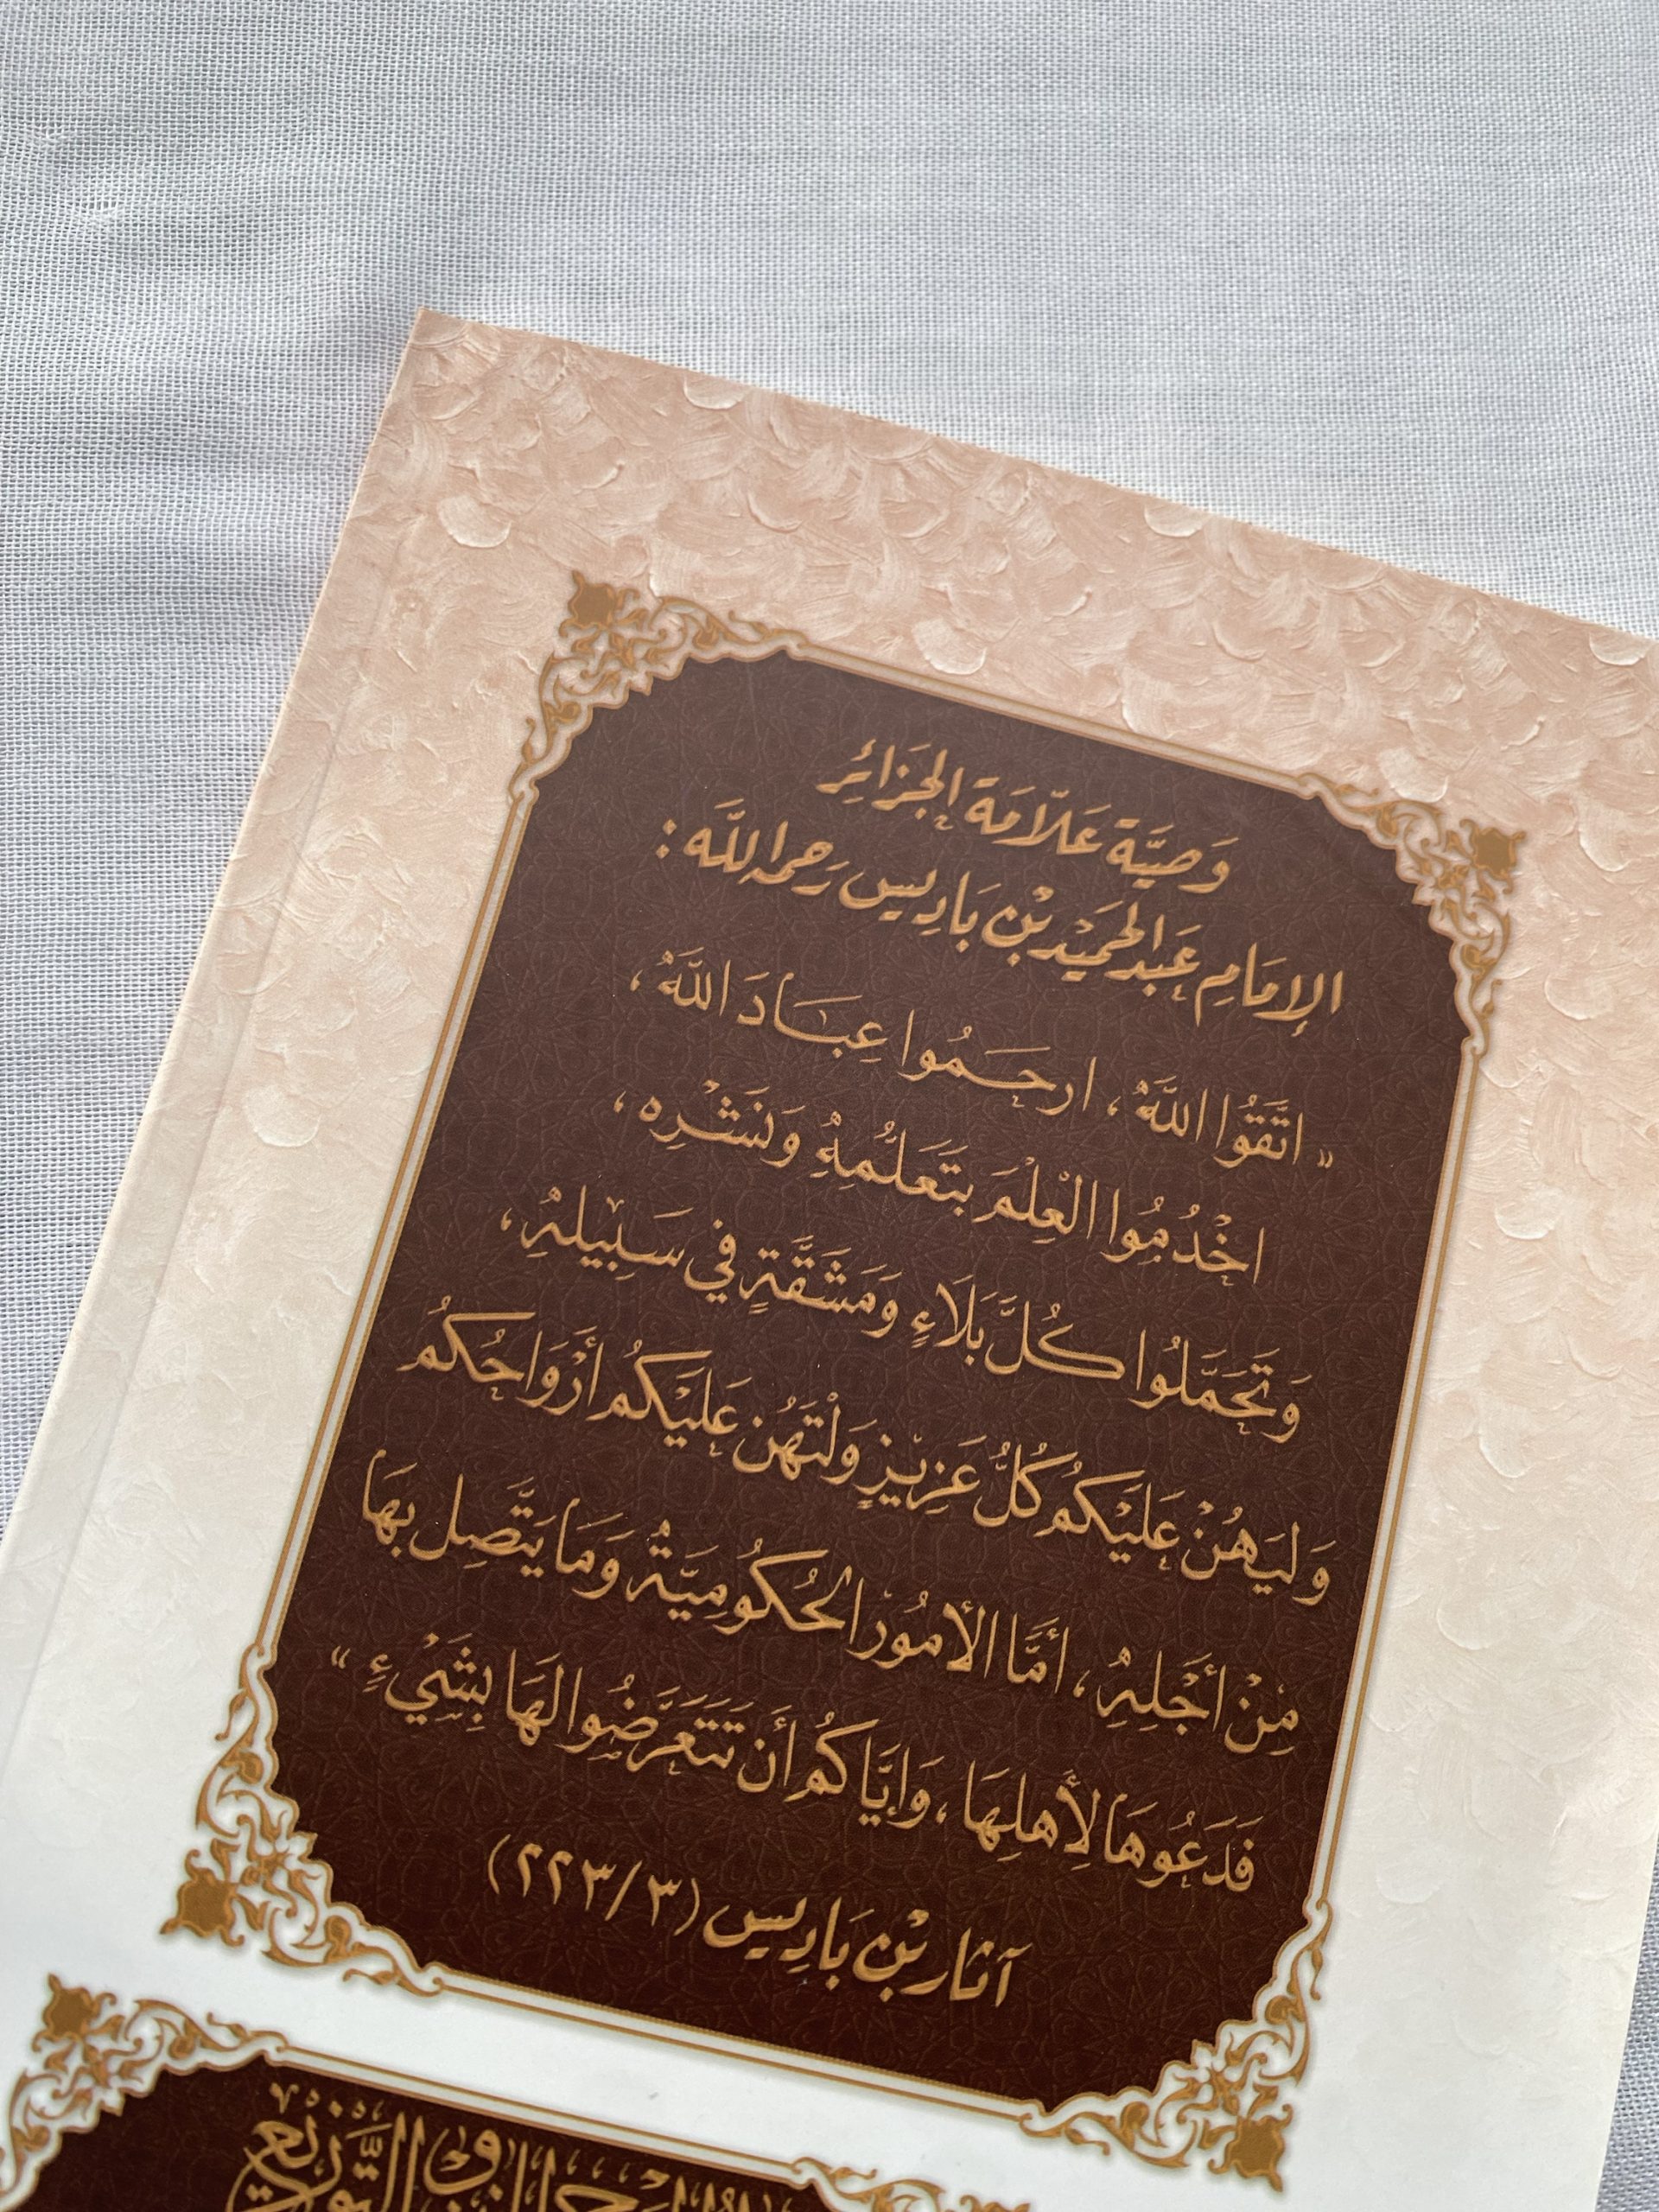 وَصِيَّة عَلّامَة الجَزائِر
الإمَامِ عَبدالحَمِيْد بْن بَادِيس رَحمه اللَّه :
« اتَّقُوا اللَّهَ ، ارحَمُوا عِبَادَ اللَّه ،
اخْدُمُوا العِلْمَ بتَعَلُّمِهِ وَنَشْرِه ،
وَتَحَمَّلُوا كُلَّ بَلَاءٍ وَمَشَقَّةٍ في سَبِيلِهِ ،
وَليَهُنْ عَليَكُم كُلُّ عَزِيزٍ وَلْتَهُن عَليَكُم أرْوَاحُكُم
مِنْ أجْلِهِ ، أمَّا الأمُورُ الحُكُومِيَّةُ وَمَا يَتَّصِل بهَا
فَدَعُوهَا لِأهلِهَا ، وَإيَّاكُم أن تَتَعَرَّضُوا لهَا بِشَيْءٍ »
آثار بْن بَادِيس (٣/٢٢٣)
والتَّوزيع